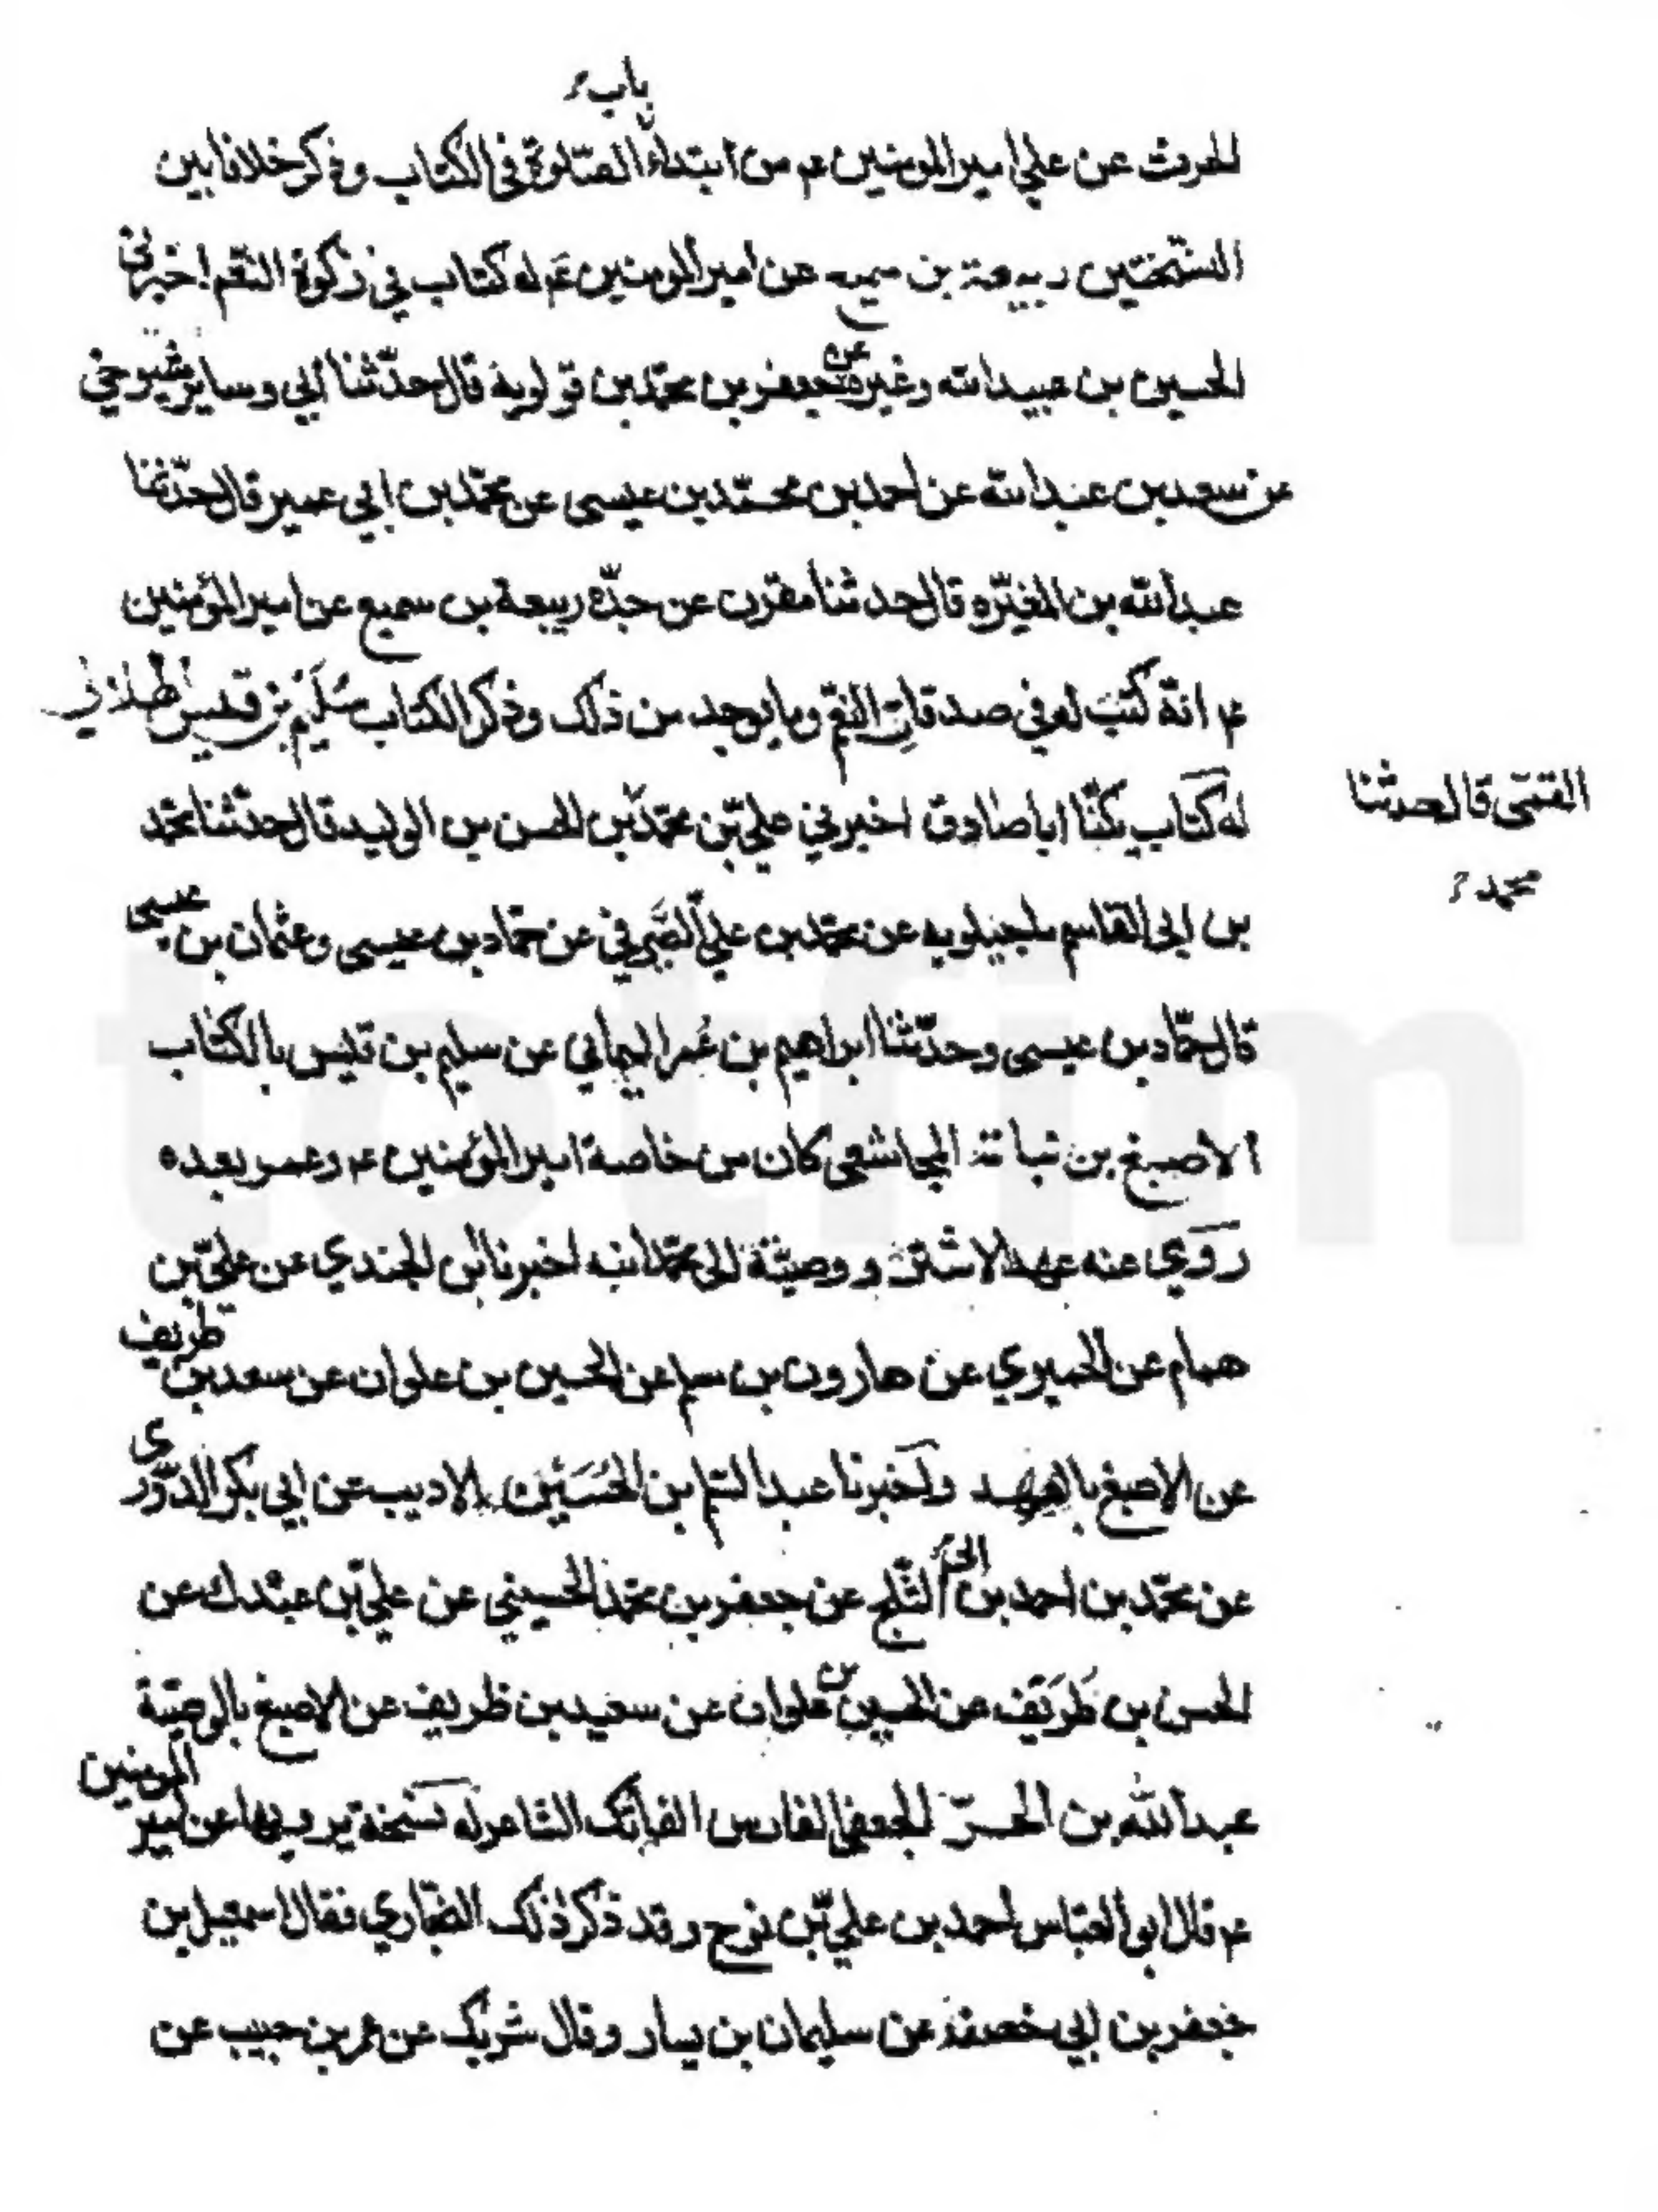 باب
الحرث عن علي امير المومنين عم من ابتداء الصّلوة في الكتاب وذكر خلافا بين
النسختين ربيعة بن سميع عن امير المومنين عم له كتاب في زكوة النّعم اخبرني
الحسين بن عبيدالله وغيره عن جعفر بن محمّد بن قولويه قال حدّثنا ابي وساير شيوخي
عن سعد بن عبدالله عن احمد بن محمّد بن عيسى عن محمّد بن ابي عمير قال حدّثنا
عبدالله بن المغيّره قال حدثنا مقرن عن جدّه ربيعة بن سميع عن امير المؤمنين
عم انّه كتب له في صدقات النّعم وما يوجد من ذلك وذكر الكتاب سُلَيْم بن قيس الهلالي
له كتاب يكنّا اباصادق اخبرني عليّ بن محمّد بن الحسن بن الوليد قال حدّثنا محمّد
القمّي قال حدثنا
محمد
بن ابي القاسم ماجيلويه عن محمّد بن عليّ الصّيرفي عن حمّاد بن عيسى وعثمان بن عيسى
قال حمّاد بن عيسى وحدّثنا ابراهيم بن عُمر اليماني عن سليم بن قيس بالكتاب
الاصبغ بن نباته المجاشعي كان من خاصة امير المؤمنين عم وعمر بعده
روي عنه عهد الاشتر ووصيّة الى محمّد ابنه اخبرنا ابن الجندي عن عليّ بن
همام عن الحميري عن هارون بن مسلم عن الحسين بن علوان عن سعد بن ظريف
عن الاصبغ بالعهد واخبرنا عبدالسّلم بن الحُسَيْن الاديب عن ابي بكر الدّوري
عن محمّد بن احمد بن ابي الثّلج عن جعفر بن محمّد الحسيني عن عليّ بن عبدك عن
الحسن بن ظريف عن الحسين بن علوان عن سعيد بن ظريف عن الاصبغ بالوصيّة
عبدالله بن الحرّ الجعفي الفارس الفاتك الشاعر له نسخة يرويها عن امير المومنين
عم قال ابو العبّاس احمد بن عليّ بن نوح وقد ذكر ذلك البخّاري فقال اسمعيل بن
جعفر بن ابي خصفه عن سليمان بن يسار وقال شريك عن عمر بن حبيب عن